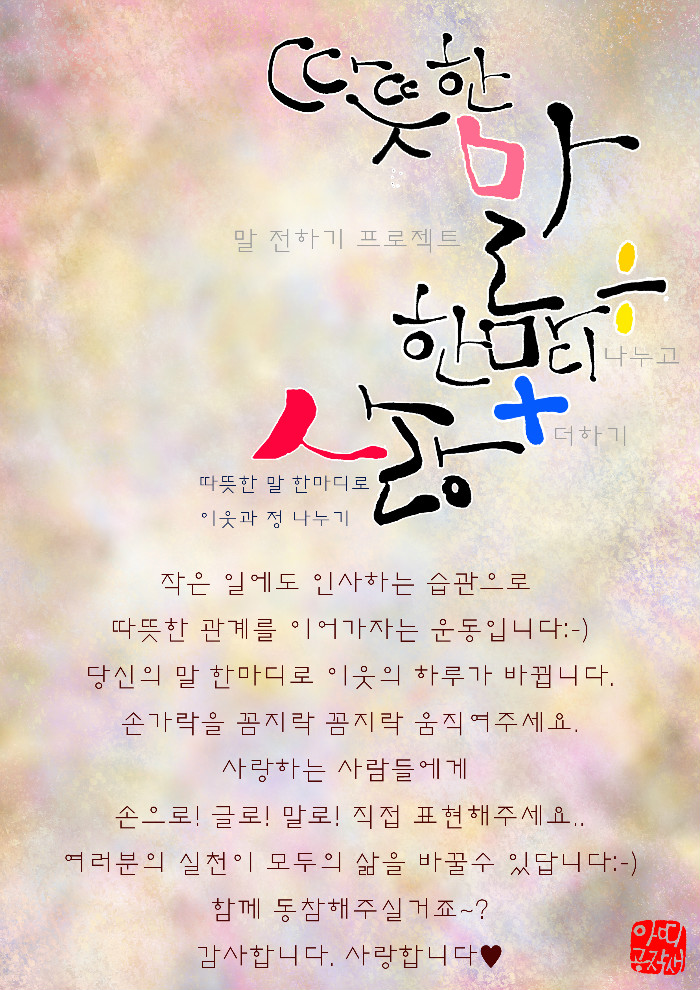 따뜻한
말
말 전하기 프로젝트
한마디
나누고
사랑
더하기
따뜻한 말 한마디로
이웃과 정 나누기
작은 일에도 인사하는 습관으로
따뜻한 관계를 이어가자는 운동입니다:-)
당신의 말 한마디로 이웃의 하루가 바뀝니다.
손가락을 꼼지락 꼼지락 움직여주세요.
사랑하는 사람들에게
손으로! 글로! 말로! 직접 표현해주세요..
여러분의 실천이 모두의 삶을 바꿀수 있답니다:-)
함께 동참해주실거죠~?
감사합니다. 사랑합니다♥
아띠
공작새